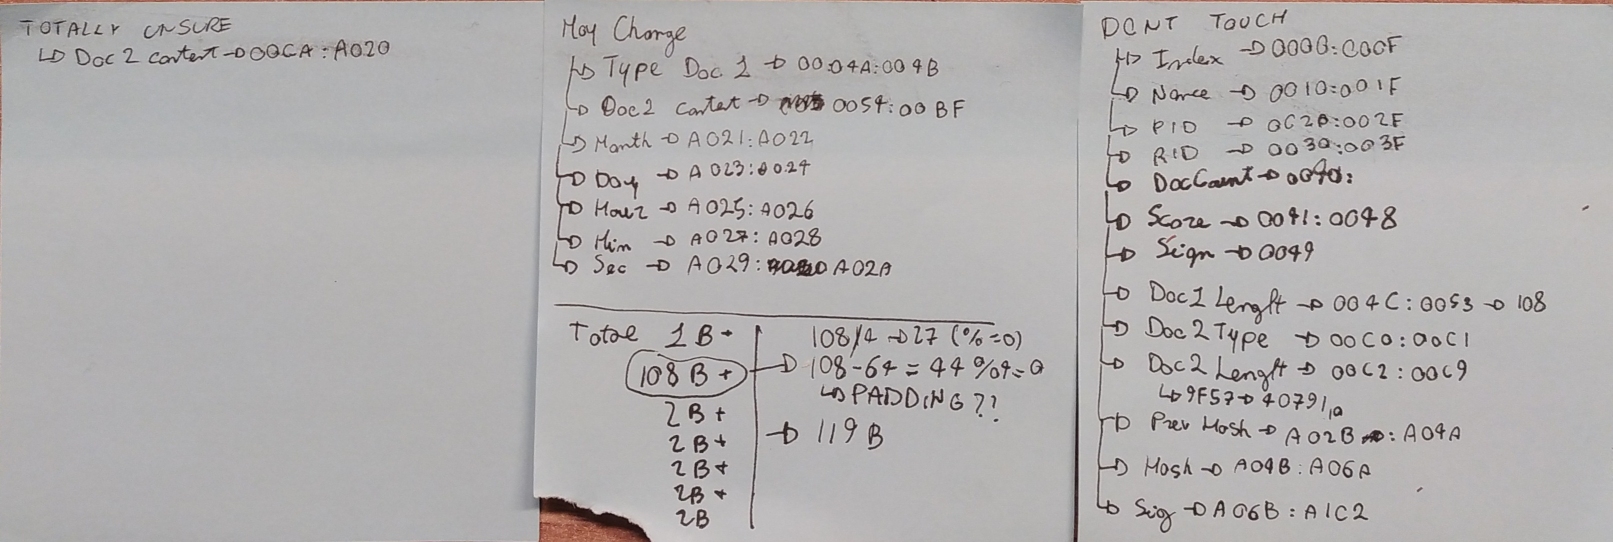 TOTALLY UNSURE
↳ Doc 2 content → 00CA:A020
May Change
↳ Type Doc 1 → 00:04A:004B
↳ Doc2 contet → 0054:00BF
↳ Month → A021:A022
↳ Day → A023:A024
↳ Hour → A025:A026
↳ Min → A027:A028
↳ Sec → A029: A02A
Total 1B+
108B+
2B+
2B+
2B+
2B+
2B
108/4 → 27 (%=0)
→ 108-64 = 44 %4=0
↳ PADDING??
→ 119B
DONT TOUCH
↳ Index → 0000:000F
↳ Nonce → 0010:001F
↳ PID → 0020:002F
↳ RID → 0030:003F
↳ DocCount → 0040:
↳ Score → 0041:0048
↳ Sign → 0049
↳ Doc1 Lenght → 004C:0053 → 108
↳ Doc2 Type → 00C0:00C1
↳ Doc2 Lenght → 00C2:00C9
↳ 9F57 → 40791₁₀
↳ Prev Hash → A02B : A04A
↳ Hash → A04B:A06A
↳ Sig → A06B:A1C2